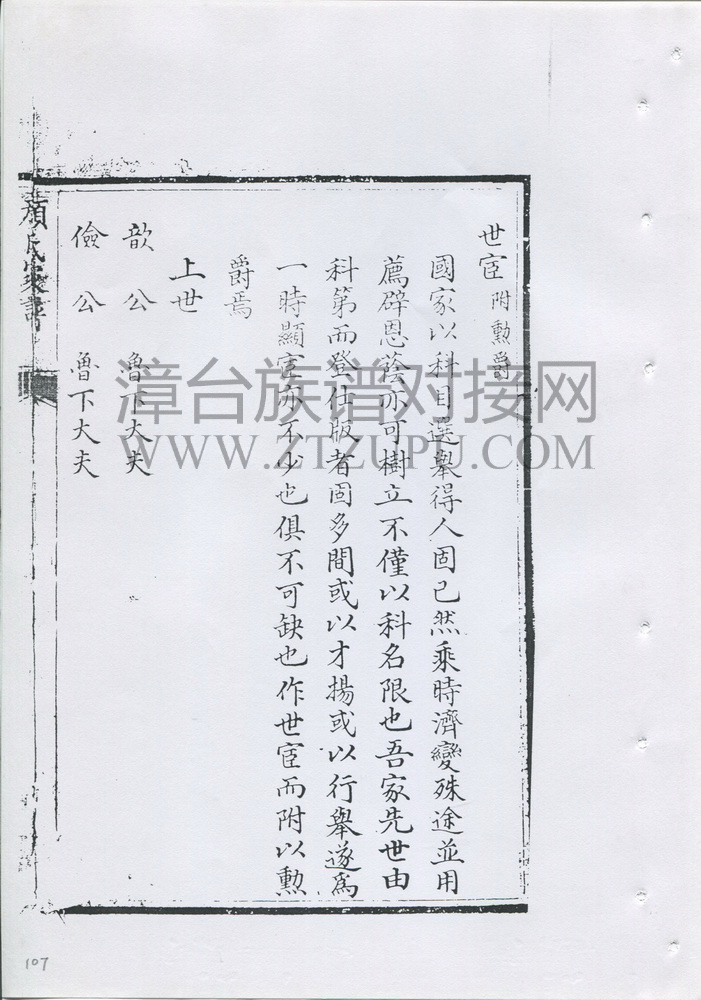 世宦 附勲爵
國家以科目選舉得人固已然乘時濟變殊途並用
薦辟恩蔭亦可樹立不僅以科名限也吾家先世由
科第而登仕版者固多間或以才揚或以行舉遂爲
一時顯宦亦不少也俱不可缺也作世宦而附以勲
爵焉
上世
歆公 魯下大夫
儉公 魯下大夫
顏氏家譜
漳台族谱对接网
WWW.ZTZUPU.COM
107